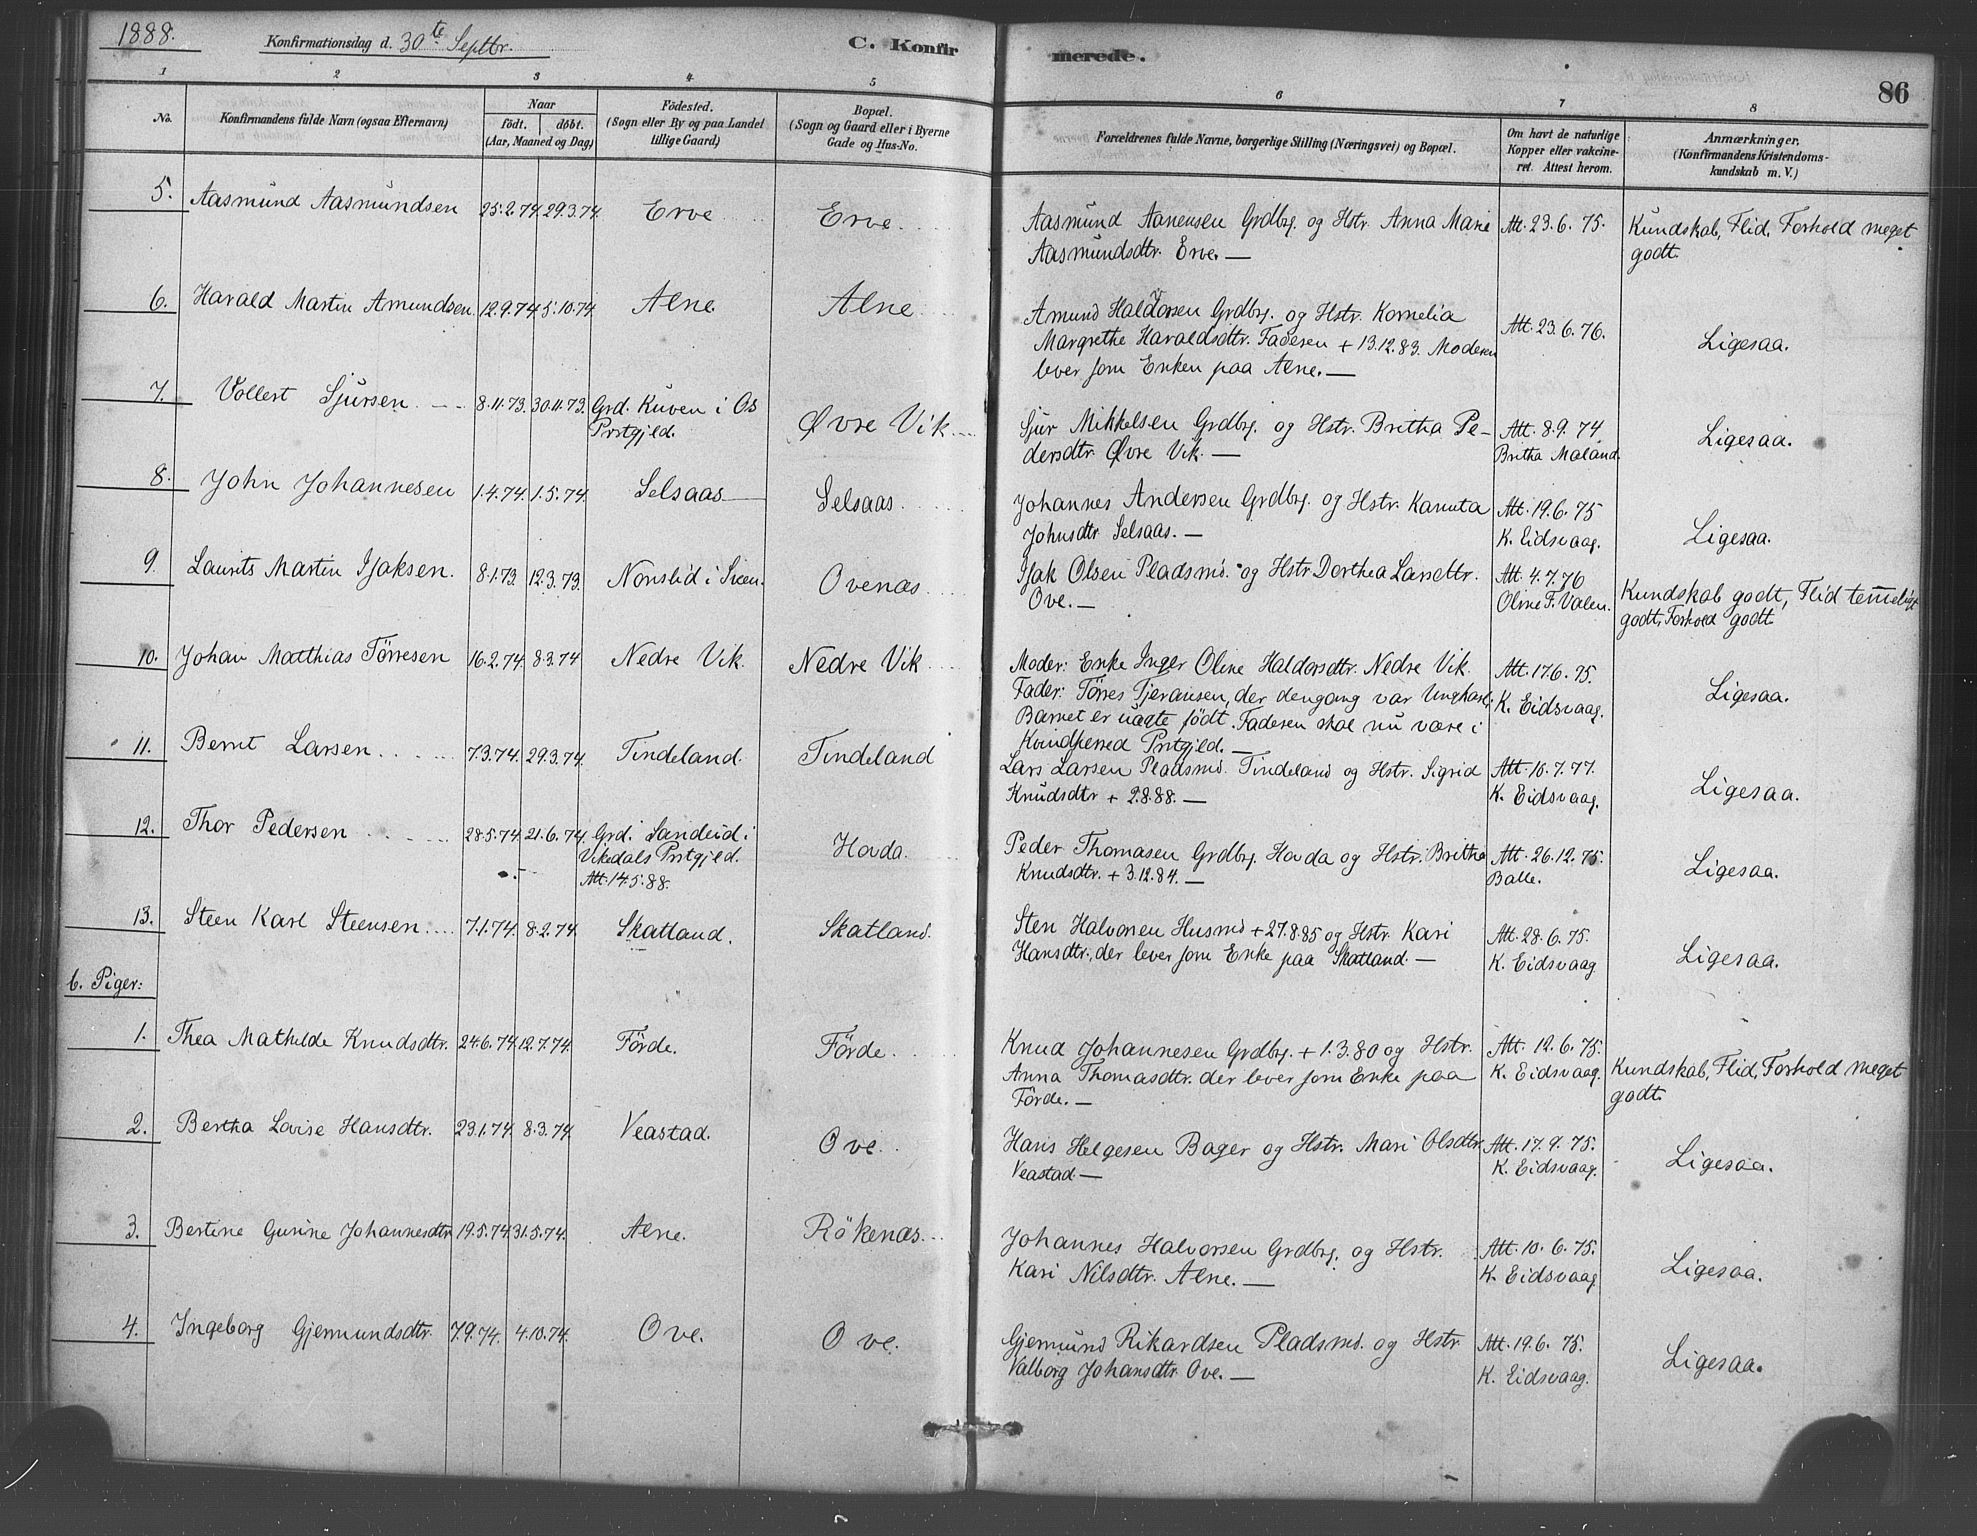 1888. Konfirmationsdag d. 30te Septbr. C. Konfirmerede. 86
1 2 3 4 5 6 7 8
No. Konfirmandens fulde Navn (ogsaa Efternavn) Naar födt. döbt. (Aar, Maaned og Dag) Födested. (Sogn eller By og paa Landet tillige Gaard) Bopæl. (Sogn og Gaard eller i Byerne Gade og Hus-No. Forældrenes fulde Navne, borgerlige Stilling (Næringsvei) og Bopæl. Om havt de naturlige Kopper eller vakcineret. Attest herom. Anmærkninger. (Konfirmandens Kristendomskundskab m. V.)
5. Aasmund Aasmundsen 25.2.74 29.3.74 Erve Erve. Aasmund Aanensen Grdbrg. og Hstr. Anna Marie Att. 23.6.75. Kundskab, Flid, Forhold meget
Aasmundsdtr. Erve. — godt.
6. Harald Martin Amundsen 12.9.74 5.10.74 Alne. Alne Amund Haldorsen Grdbrg. og Hstr. Kornelia Att. 23.6.76. Ligesaa.
Margrethe Haraldsdtr. Faderen + 13.12.83. Moderen
lever som Enken paa Alne. —
7. Vollert Sjursen 8.11.73. 30.11.73. Grd. Kuven i Os Øvre Vik Sjur Mikkelsen Grdbrg. og Hstr. Britha Pe- Att. 8.9.74 Ligesaa.
Prstgjeld. dersdtr. Øvre Vik. — Britha Maland.
8. John Johannesen 1.4.74. 1.5.74. Selsaas Selsaas. Johannes Andersen Grdbrg. og Hstr. Kanuta Att. 19.6.75 Ligesaa.
Johnsdtr Selsaas. — K. Eidsvaag.
9. Laurits Martin Isaksen. 8.1.73 12.3.73. Nonslid i Sveen. Ovenæs Isak Olsen Pladsmd. og Hstr. Dorthea Larsdtr. Att. 4.7.76 Kundskab godt, Flid temeligt
Ove. — Oline F. Valen. godt, Forhold godt.
10. Johan Matthias Törresen 16.2.74. 8.3.74 Nedre Vik. Nedre Vik Moder: Enke Inger Oline Haldorsdtr. Nedre Vik. Att. 17.6.75. Ligesaa.
Fader: Törres Tjeransen, der dengang var Ungkarl; K. Eidsvaag.
Barnet er uægte födt. Faderen skal nu være i
Kvindherred Prstgjld. —
11. Bernt Larsen 7.3.74. 29.3.74. Tindeland. Tindeland Lars Larsen Pladsmd. Tindeland og Hstr. Sigrid Att. 10.7.77. Ligesaa.
Knudsdtr + 2.8.88. — K. Eidsvaag.
12. Thor Pedersen 28.5.74. 21.6.74. Grd. Sandeid i Hovda Peder Thomasen Grdbrg. Hovda og Hstr. Britha Att. 26.12.75. Ligesaa.
Vikedals Prstgjld. Knudsdtr. + 3.12.84. — Balle.
Att. 14.5.88.
13. Steen Karl Steensen 7.1.74. 8.2.74. Skatland. Skatland. Sten Halvorsen Husmd + 27.8.85 og Hstr. Kari Att. 28.6.75. Ligesaa.
Hansdtr., der lever som Enke paa Skatland. — K. Eidsvaag
b. Piger:
1. Thea Mathilde Knudsdtr. 24.6.74. 12.7.74. Förde. Förde. Knud Johannesen Grdbrg. + 1.3.80 og Hstr. Att. 12.6.75. Kundskab, Flid, Forhold meget
Anna Thomasdtr. der lever som Enke paa K. Eidsvaag. godt.
Förde. —
2. Bertha Lovise Hansdtr. 23.1.74. 8.3.74. Veastad. Ove. Hans Helgesen Bager og Hstr. Mari Olsdtr. Att. 17.9.75. Ligesaa.
Veastad — K. Eidsvaag.
3. Bertine Gurine Johannesdtr 19.5.74. 31.5.74. Alne. Rökenæs Johannes Halvorsen Grdbrg. og Hstr. Att. 10.6.75. Ligesaa.
Kari Nilsdtr. Alne. — K. Eidsvaag
4. Ingeborg Gjermundsdtr. 7.9.74. 4.10.74. Ove. Ove. Gjermund Rikardsen Pladsmd. og Hstr. Att. 19.6.75. Ligesaa.
Valborg Johansdtr Ove. — K. Eidsvaag.